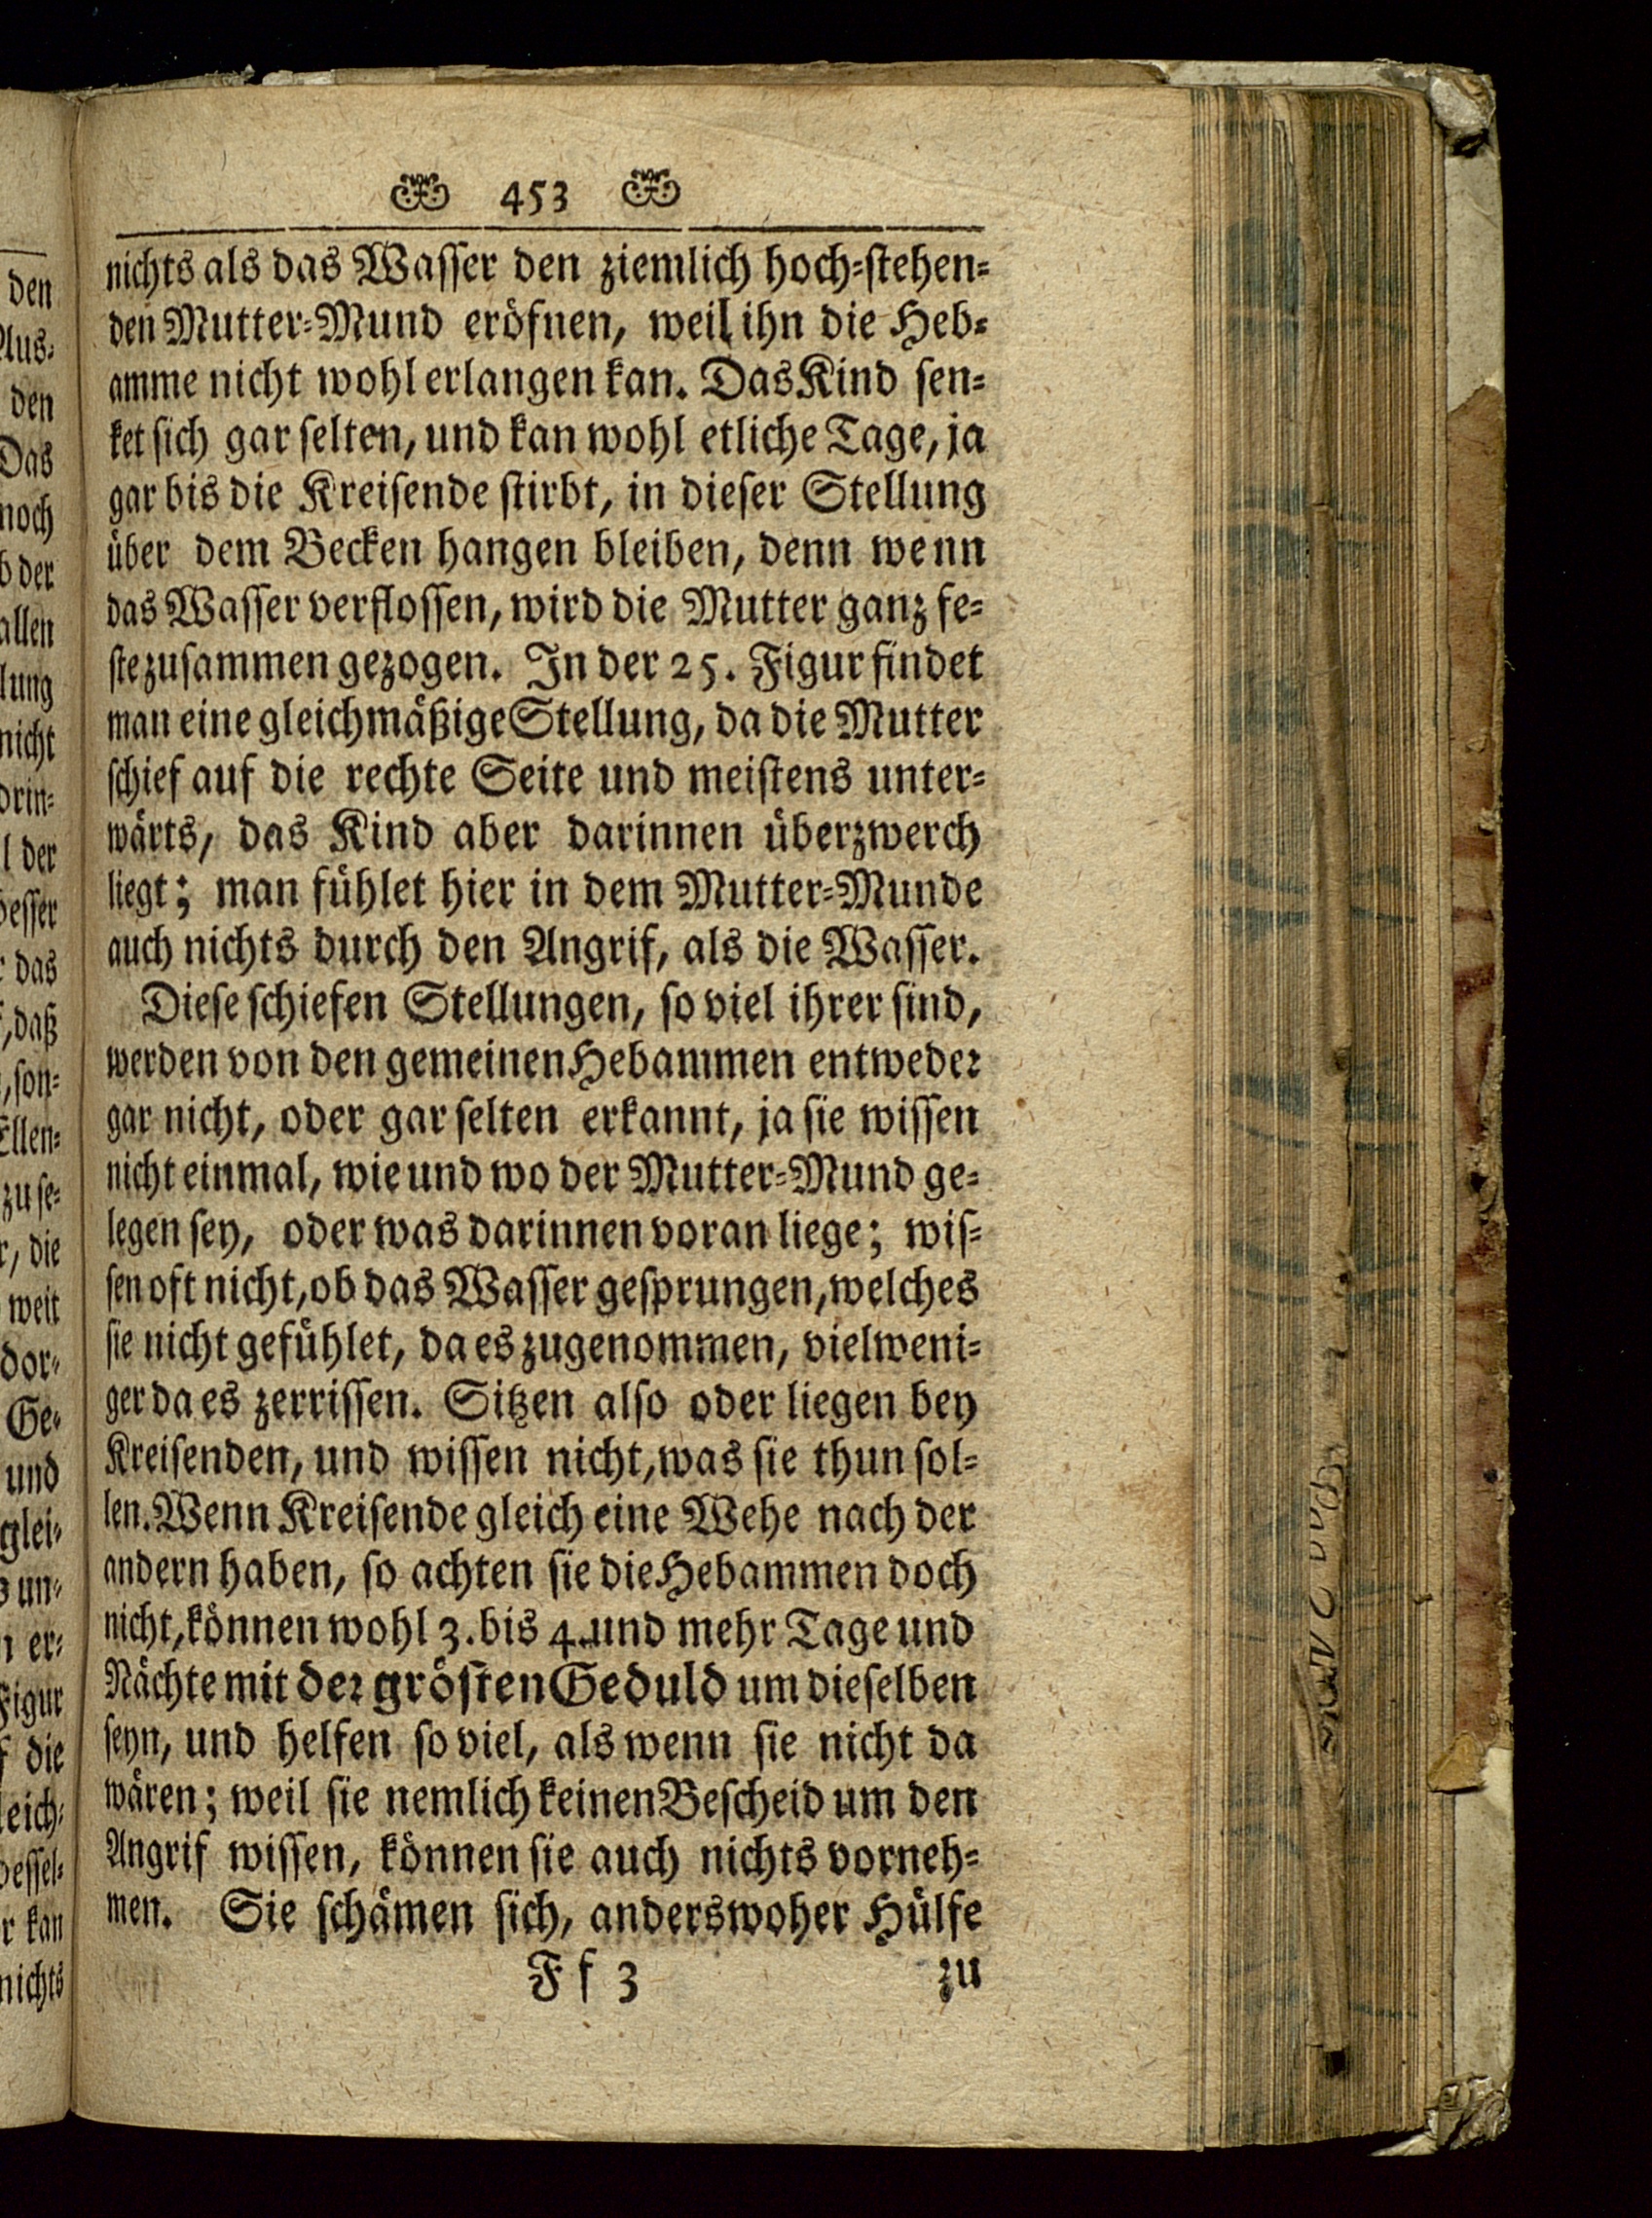 453
nichts als das Wasser den ziemlich hoch-stehen-
den Mutter-Mund eröfnen, weil ihn die Heb-
amme nicht wohl erlangen kan. Das Kind sen-
ket sich gar selten, und kan wohl etliche Tage, ja
gar bis die Kreisende stirbt, in dieser Stellung
über dem Becken hangen bleiben, denn wenn
das Wasser verflossen, wird die Mutter ganz fe-
ste zusammen gezogen. In der 25. Figur findet
man eine gleichmäßige Stellung, da die Mutter
schief auf die rechte Seite und meistens unter-
wärts, das Kind aber darinnen überzwerch
liegt; man fühlet hier in dem Mutter-Munde
auch nichts durch den Angrif, als die Wasser.
Diese schiefen Stellungen, so viel ihrer sind,
werden von den gemeinen Hebammen entweder
gar nicht, oder gar selten erkannt, ja sie wissen
nicht einmal, wie und wo der Mutter-Mund ge-
legen sey, oder was darinnen voran liege; wis-
sen oft nicht, ob das Wasser gesprungen, welches
sie nicht gefühlet, da es zugenommen, vielweni-
ger da es zerrissen. Sitzen also oder liegen bey
Kreisenden, und wissen nicht, was sie thun sol-
len. Wenn Kreisende gleich eine Wehe nach der
andern haben, so achten sie die Hebammen doch
nicht, können wohl 3. bis 4. und mehr Tage und
Nächte mit der grösten Geduld um dieselben
seyn, und helfen so viel, als wenn sie nicht da
wären; weil sie nemlich keinen Bescheid um den
Angrif wissen, können sie auch nichts vorneh-
men. Sie schämen sich, anderswoher Hülfe
F f 3 zu